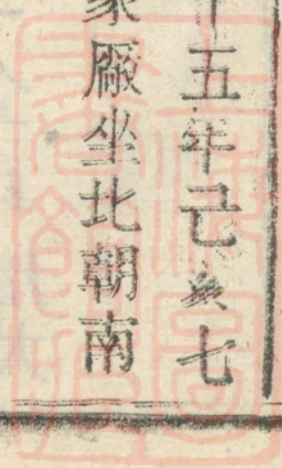 十五年己亥七
家厰坐北朝南